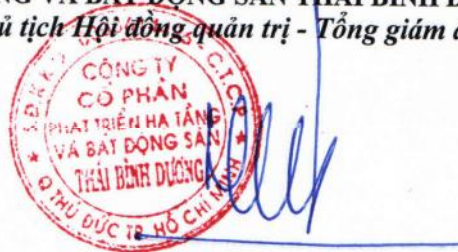 NG VÀ BẤT ĐỘNG SẢN THÁI BÌNH D
ủ tịch Hội đồng quản trị - Tổng giám đ
CÔNG TY
CỔ PHẦN
PHÁT TRIỂN HẠ TẦNG
VÀ BẤT ĐỘNG SẢN
THÁI BÌNH DƯƠNG
Q THỦ ĐỨC TP. HỒ CHÍ MINH